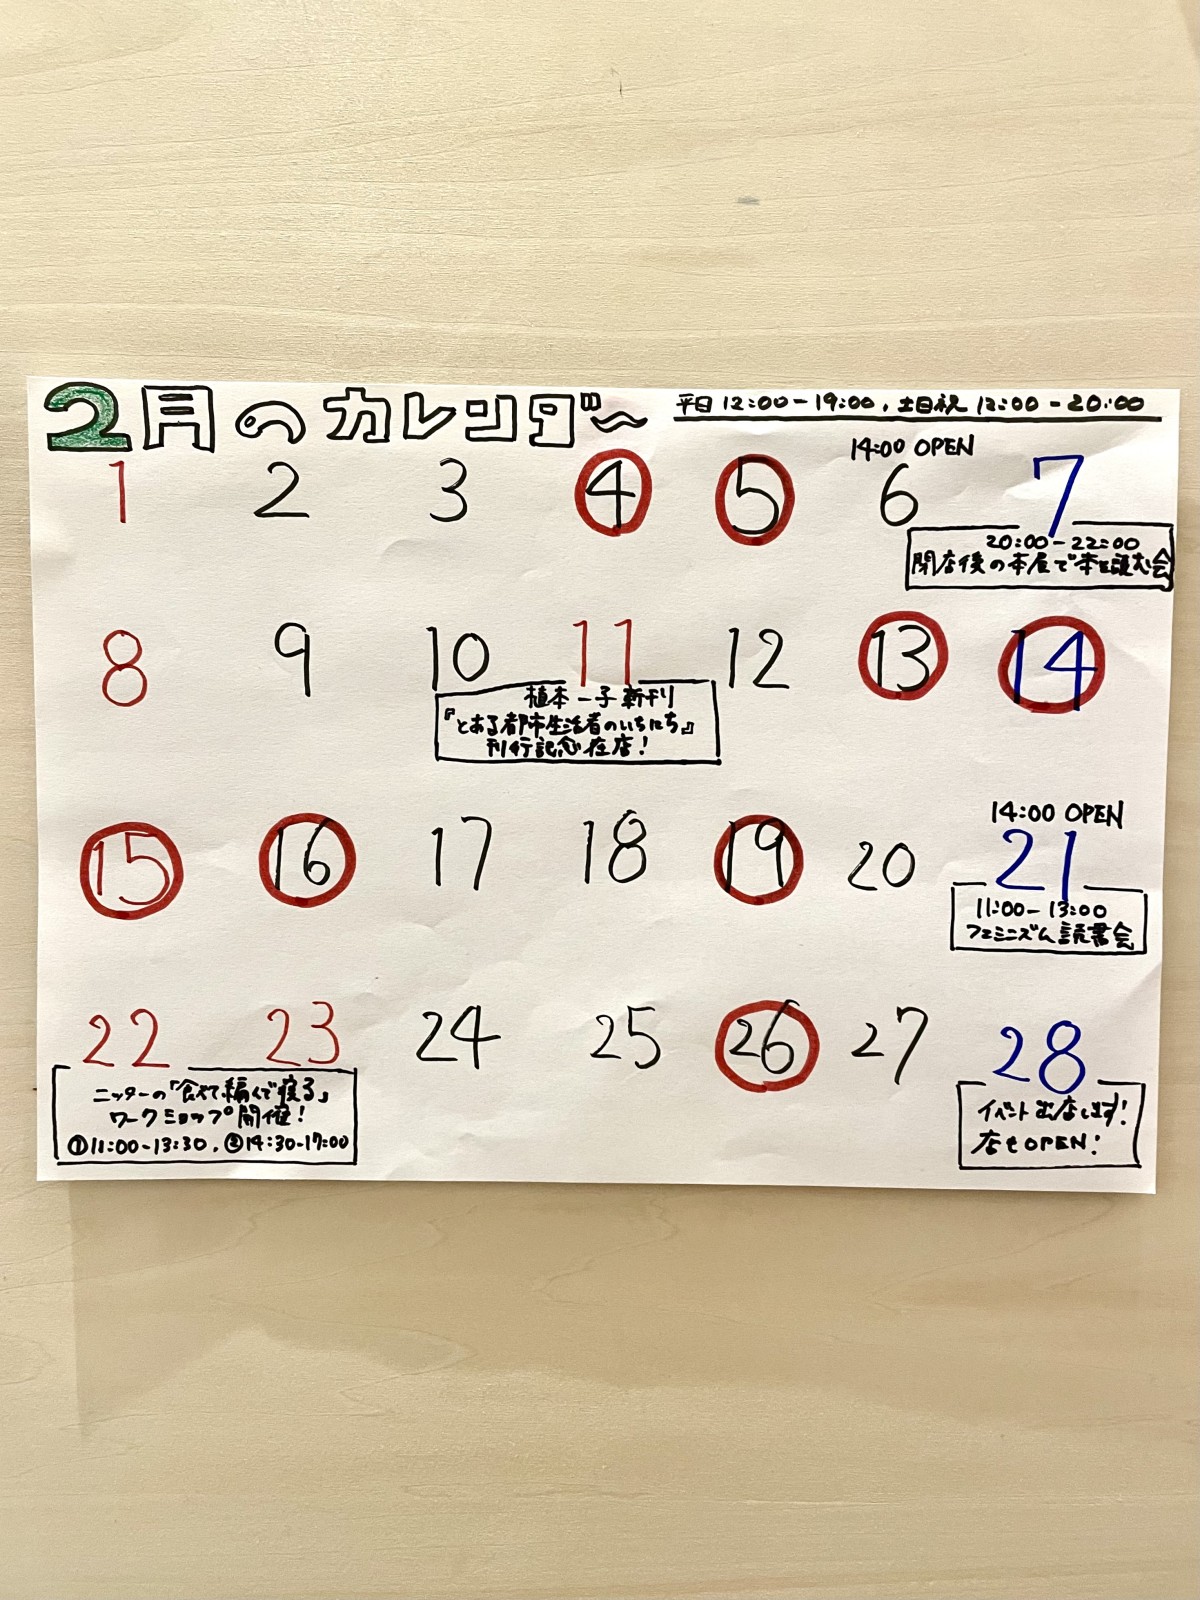 2月のカレンダ〜
平日 12:00-19:00, 土日祝 12:00-20:00
14:00 OPEN
1 2 3 4 5 6 7
20:00-22:00
閉店後の本屋で本を読む会
8 9 10 11 12 13 14
植本一子新刊
『とある都市生活者のいちにち』
刊行記念在店!
14:00 OPEN
15 16 17 18 19 20 21
11:00-13:00
フェミニズム読書会
22 23 24 25 26 27 28
ニッターの「食べて編んで喋る」
ワークショップ開催!
①11:00-13:30, ②14:30-17:00
イベント出店します!
店もOPEN!